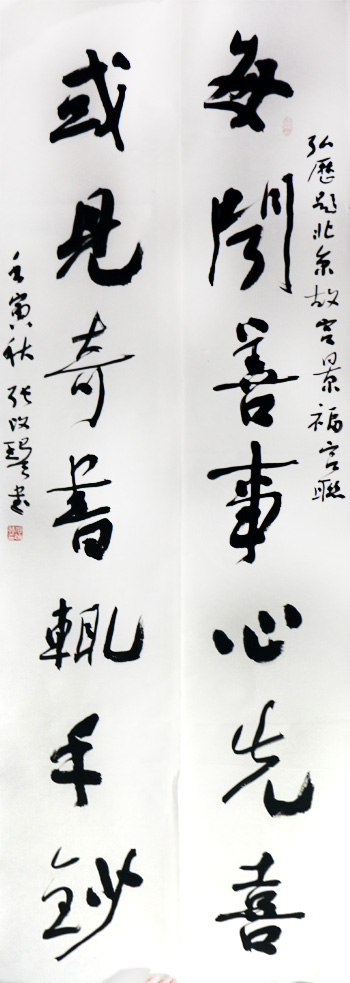 弘歷題北京故宫景福宫聯
每聞善事心先喜
或見奇書輒手鈔
壬寅秋 張政 書